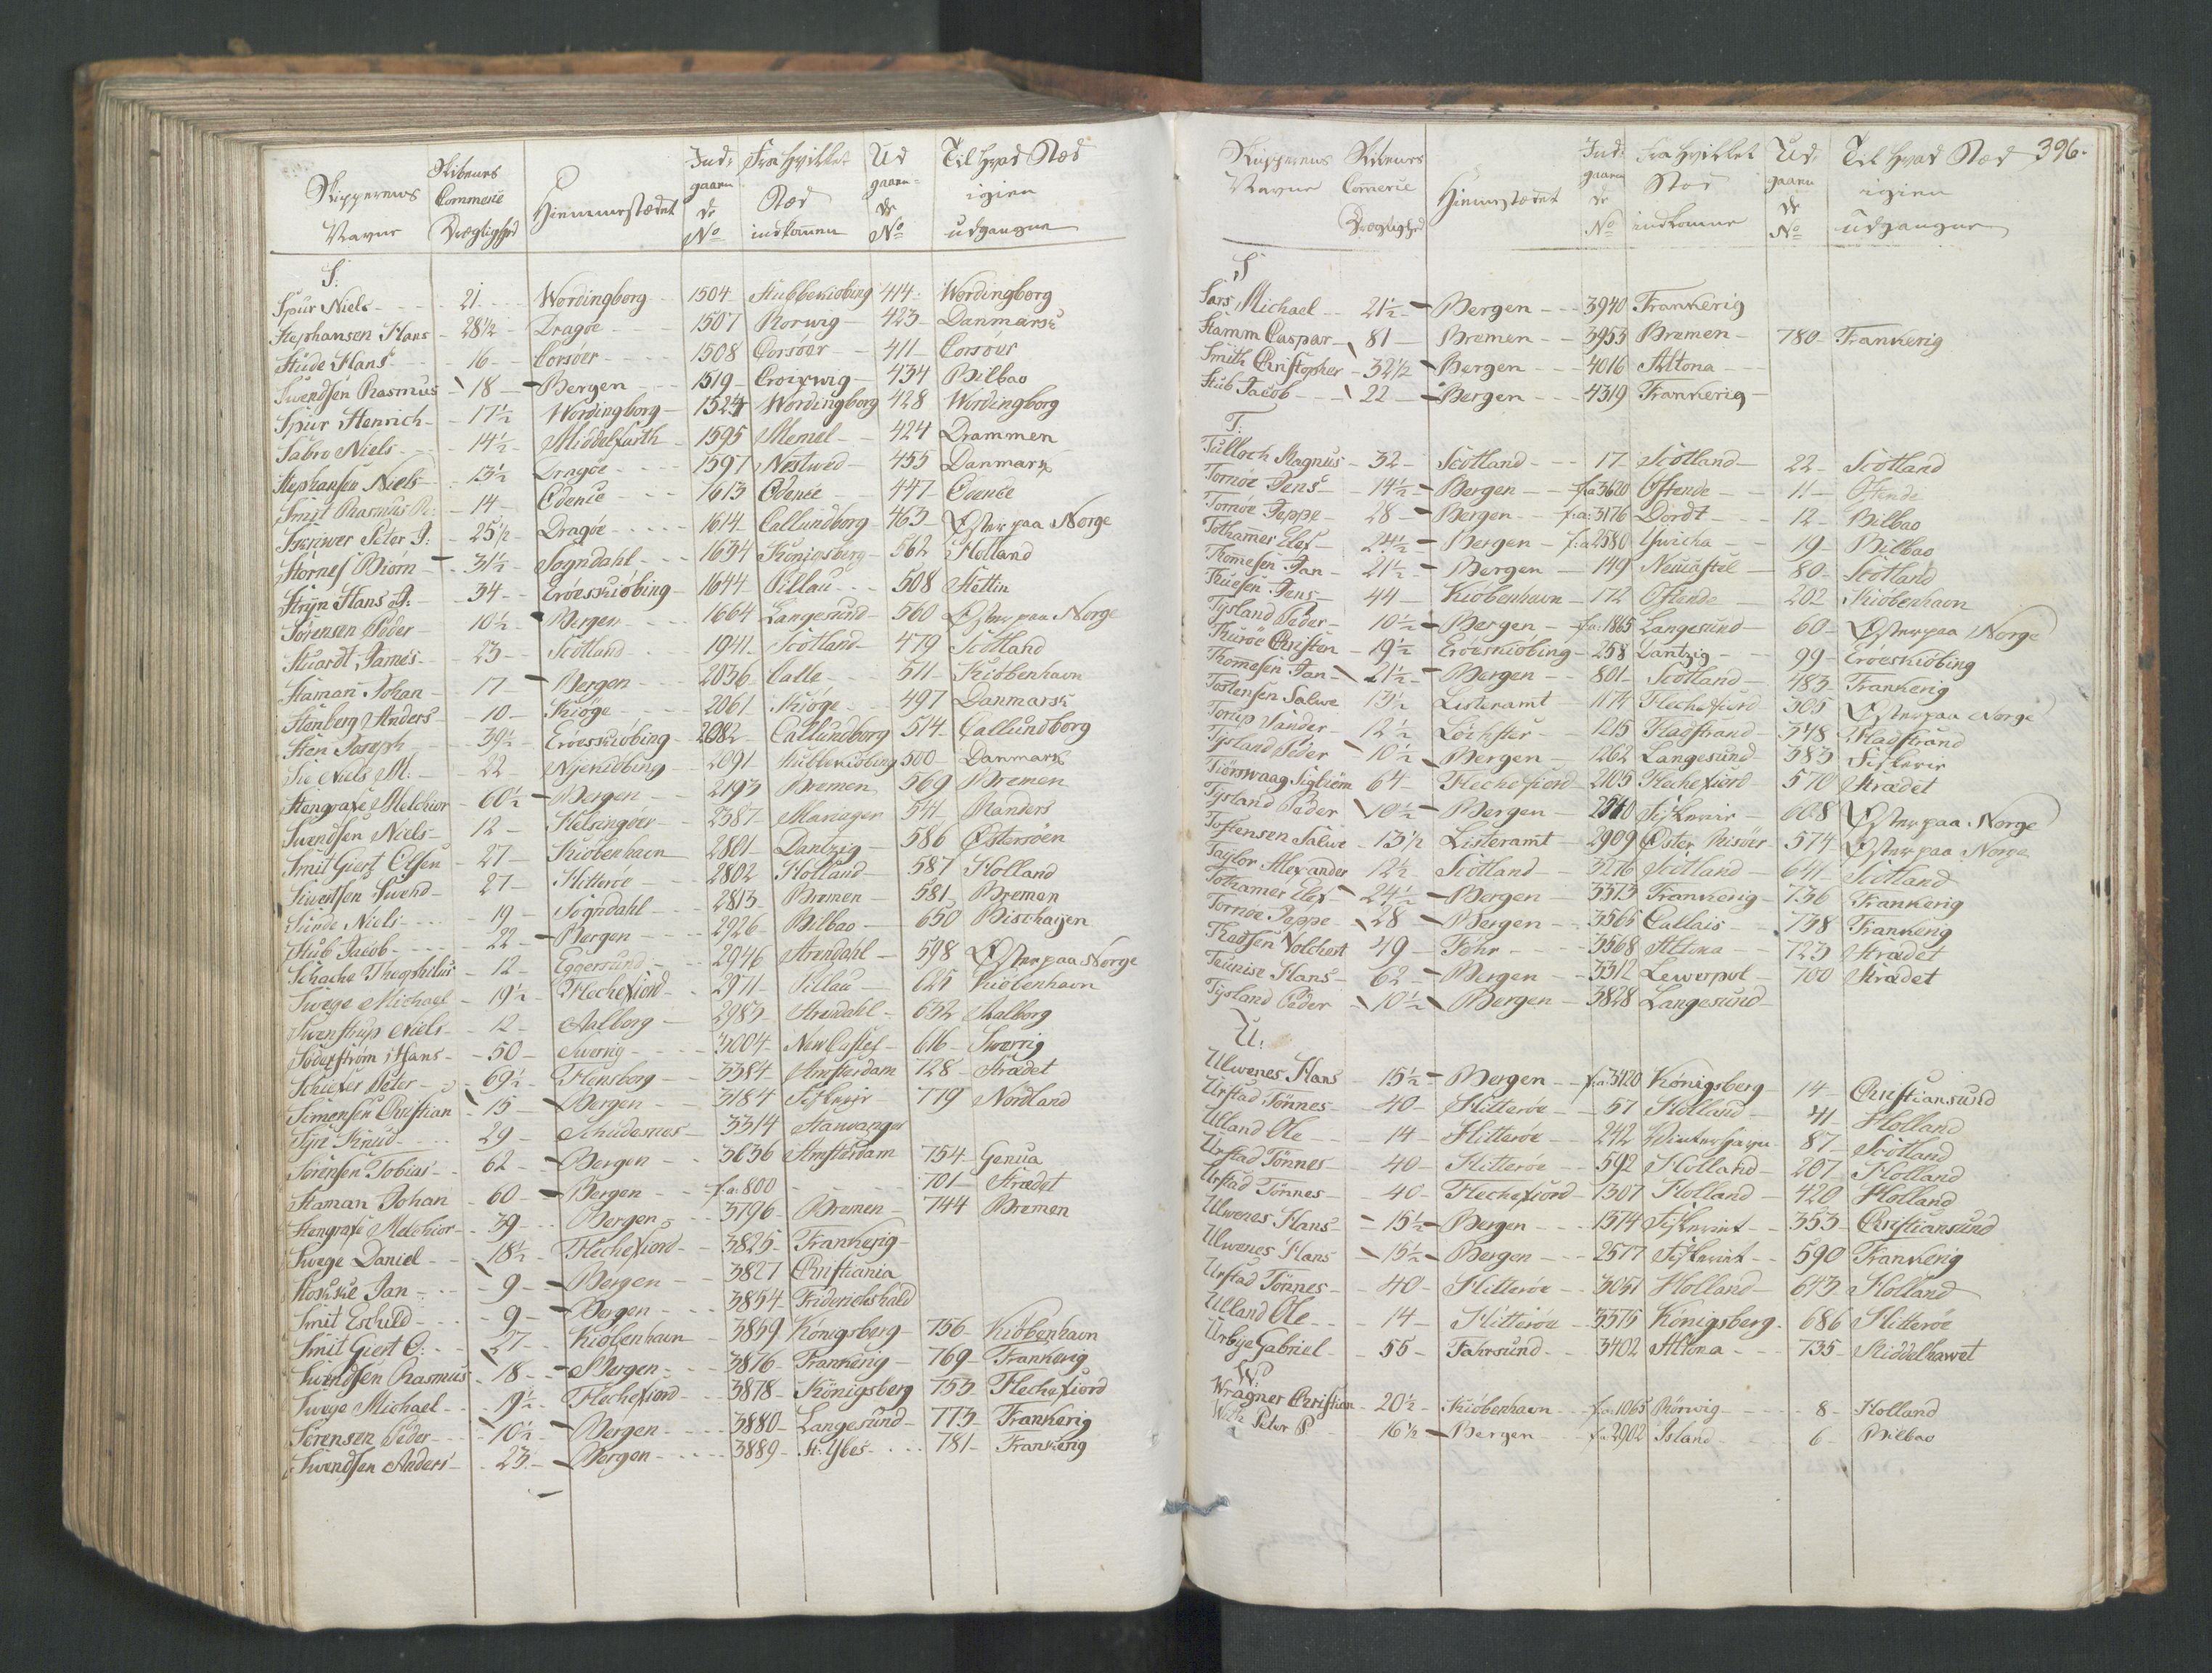 Skipperens Navne | Skibenes Commerce Drægtighed | Hiemmestædet | Indgaaende No | Fra hvilket Stæd indkommen | Udgaaende No | Til hvad Stæd igien udgangne
S:
Spur Niels - 21 - Wordingborg - 1504 - Stubbekiobing 414 - Wordingborg
Stephansen Hans - 28½ - Dragöe - 1507 Rorwig - 423 - Danmarck
Stude Hans - 16 - Corsöer - 1508 Corsöer - 411 - Corsöer
Swendsen Rasmus - 18 - Bergen - 1519 - Croixwig - 434 Bilbao
Spur Henrich - 17½ - Wordingborg - 1524 Wordingborg 428 Wordingborg
Sabro Niels - 14½ - Middelfarth - 1595 Memel - 424 Drammen
Stephansen Niels - 13½ Dragöe - 1597 Nestwed - 455 Danmark
Smit Rasmus - 14 - Odense - 1613 Odense - 447 - Odense
Skriwer Peter J: - 25½ - Dragöe - 1614 - Callundborg - 463 - Øster paa Norge
Störnes Biörn - 31½ - Sogndahl - 1634 Königsberg - 562 Holland
Stryn Hans J: - 34 - Eröeskiöbing - 1644 - Pillau - 508 Stettin
Sörensen Peder - 10½ - Bergen - 1664 Langesund - 560 Øster paa Norge
Stuardt James - 23 - Scotland - 1941 - Scotland - 479 Scotland
Staman Johan - 17 - Bergen - 2036 Calle - 511 - Kiöbenhavn
Stenberg Anders - 10 - Kiöge - 2061 - Kiöge - 497 Danmarck
Sten Joseph - 39½ - Eröeskiöbing - 2082 - Callundborg 514 - Callundborg
Sie Niels M: - 22 - Nyekiöbing - 2091 - Stubbekiöbing 500 - Danmark
Stengrafe Melchior - 60½ - Bergen - 2193 Bremen 569 Bremen
Swendsen Niels - 12 - Helsingöer - 2387 - Mariager 541 - Randers
Smit Giert Olsen - 27 - Kiöbenhavn - 2801 - Dantzig - 586 Östersöen
Siwertsen Swend - 27 - Hitteröe - 2802 Holland - 587 Holland
Sünde Niels - 19 - Sogndahl - 2813 - Bremen - 581 Bremen
Stub Jacob - 22 - Bergen - 2926 - Bilbao - 650 Bischayen
Schache Theophilus - 12 - Eggersund - 2946 Arendahl - 598 Øster paa Norge
Swege Michael - 19½ - Flechefiord - 2971 - Pillau - 625 Kiöbenhavn
Swenstrup Niels - 12 - Aalborg - 2983 - Arendahl - 632 Aalborg
Söderström Hans - 50 - Swerrig - 3004 - New Castel - 616 - Swerrig
Schiefer Peter - 69½ - Flensborg - 3384 Amsterdam 728 - Strædet
Simensen Christian - 15 - Bergen - 3184 Fiskerie - 779 Nordland
Syre Knud - 29 - Schudesnes - 3314 Stawanger
Sörensen Tobias - 62 - Bergen - 3636 Amsterdam 754 - Genua
Staman Johan - 60 - Bergen - f:a: 800 - 701 - Strædet
Stengrafe Melchior - 39 - Bergen - 3796 - Bremen - 744 Bremen
Swege Daniel - 18½ - Flechefiord - 3825 - Frankerig
Kosuse Jan - 9 - Bergen - 3827 Christiania
Smit Eschild - 9 - Bergen - 3854 - Friderichshald
Smit Giert O: - 27 - Kiöbenhavn - 3859 Königsberg - 756 - Kiöbenhavn
Swendsen Rasmus - 18 - Bergen - 3876 - Frankerig - 769 - Frankerig
Swege Michael - 19½ - Flechefiord - 3878 - Königsberg 753 - Flechefiord
Sörensen Peder - 10½ - Bergen - 3880 - Langesund - 773 - Frankerig
Swendsen Anders - 23 - Bergen - 3889 - St: Ybes - 781 - Frankerig
396.
Skipperens Navne | Skibenes Comerce Drægtighed | Hiemmestædet | Indgaaende No | Fra hvilket Stæd indkomne | Udgaaende No | Til hvad Stæd igien udgangne
S
Sars Michael - 21½ - Bergen - 3940 Frankerig
Stamm Caspar - 81 - Bremen - 3953 Bremen - 780 - Frankerig
Smith Christopher - 32½ - Bergen - 4016 Altona
Stub Jacob - 22 - Bergen - 4319 Frankerig
T:
Tulloch Magnus - 32 - Scotland - 17 - Scotland - 22 - Scotland
Tornöe Jens - 14½ - Bergen - f:a 3620 Ostende - 11 - Ostende
Tornöe Jeppe - 28 - Bergen - f:a: 3176 Dordt - 12 - Bilbao
Tothamer Elef - 24½ - Bergen - f:a 2580 - 19 - Bilbao
Thomesen Jan - 21½ - Bergen - 149 Neucastel - 80 - Scotland
Thuesen Jens - 44 - Kiöbenhavn - 172 Ostende - 202 - Kiöbenhavn
Tysland Peder - 10½ - Bergen - f:a: 1865 Langesund - 60 - Øster paa Norge
Thuröe Christen - 19½ Eröeskiöbing - 258 Dantzig - 99 - Eröeskiöbing
Thomesen Jan - 21½ - Bergen - 801 - Scotland - 483 - Frankerig
Tostensen Salwe 13½ Listeramt - 1174 Flechefiord - 305 Øster paa Norge
Torup Sander - 12½ Löchster - 1215 Fladstrand - 348 - Fladstrand
Tysland Peder - 10½ - Bergen - 1262 Langesund - 383 Fiskerie
Tiörswaag Sigbiörn 64 - Flechefiord - 2105 Flechefiord - 570 Strædet
Tysland Peder - 10½ - Bergen - 2740 Fiskerie - 608 Øster paa Norge
Tostensen Salwe - 13½ Listeramt - 2909 Øster Risöer - 574 Øster paa Norge
Taylor Alexander 12½ Scotland - 3276 Scotland - 641 - Scotland
Tothamer Elef - 24½ - Bergen - 3373 Frankerig - 736 Frankerig
Tornöe Jeppe - 28 - Bergen - 3565 Callais - 738 Frankerig
Thadsen Volchert 49 - Föhr - 3568 Altona - 723 Strædet
Teunise Hans - 62 - Bergen - 3312 Lewerpol - 700 Strædet
Tysland Peder - 10½ - Bergen - 3828 Langesund
U:
Ulwenes Hans - 15½ - Bergen - f:a: 3420 Königsberg - 14 - Christiansund
Urstad Tönnes - 40 - Hitteröe - 57 Holland - 41 - Holland
Ulland Ole - 14 - Hitteröe - 242 Vinterhavn - 87 - Scotland
Urstad Tönnes - 40 - Hitteröe - 592 Holland - 207 - Holland
Urstad Tönnes - 40 - Flechefiord - 1307 Holland - 420 Holland
Ulwenes Hans - 15½ - Bergen - 1574 Fiskeriet - 353 - Christiansund
Ulwenes Hans - 15½ - Bergen - 2577 Fiskeriet - 590 Frankerig
Urstad Tönnes - 40 - Hitteröe - 3051 Holland - 643 - Holland
Ulland Ole - 14 - Hitteröe - 3375 Königsberg - 686 Hitteröe
Urbye Gabriel - 55 - Fahrsund - 3402 Altona - 735 - Middelhawet
W:
Wragner Christian - 20½ - Kiöbenhavn f:a: 1065 Rörwig - 8 - Holland
With Peter P - 16½ - Bergen - f:a 2902 Island - 6 - Bilbao